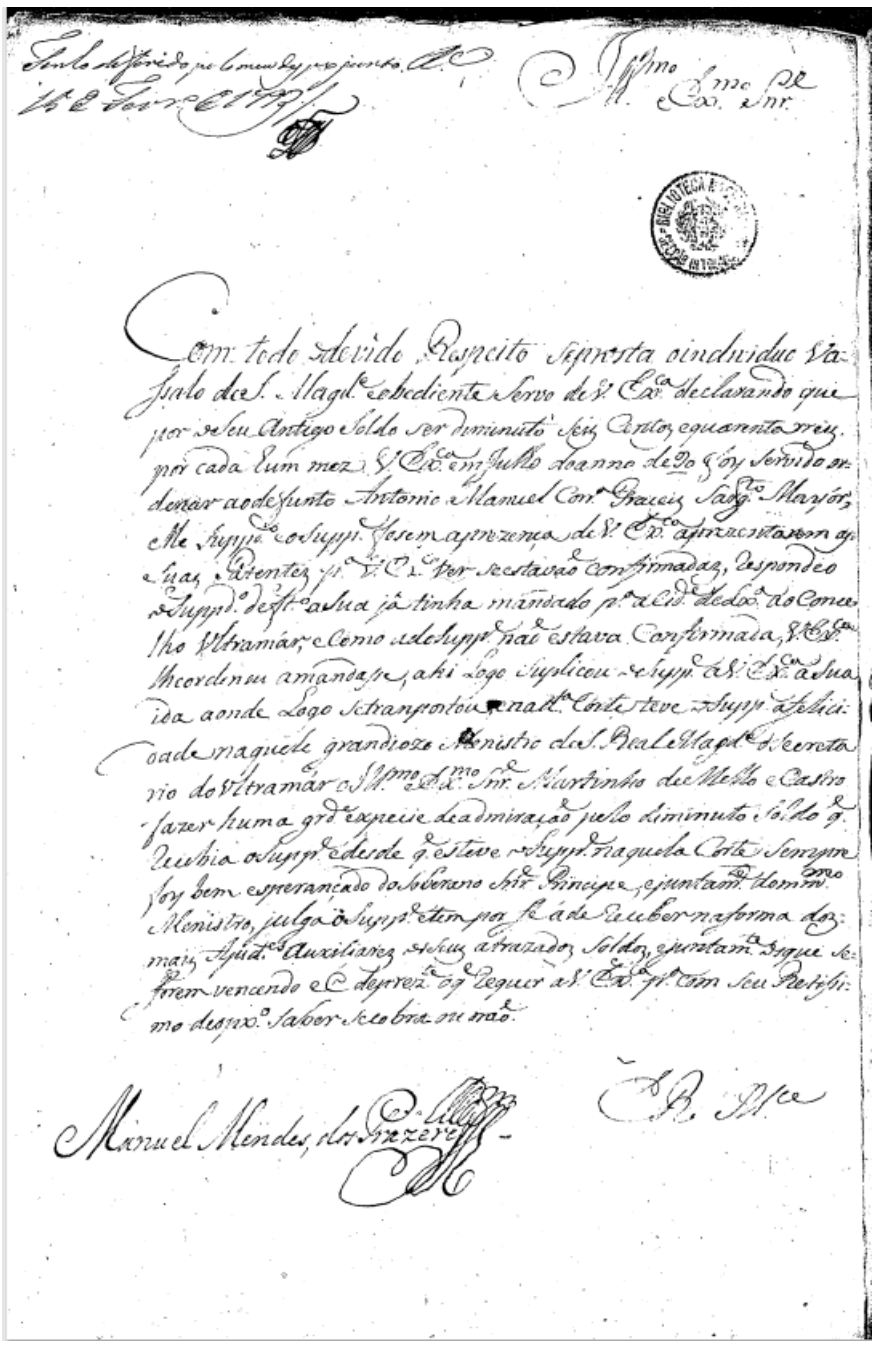 Tenho deferido pelo meu despº junto. Rº
15 de Fevrº de 1793
Illmo e Exmo Snr.
BIBLIOTECA NACIONAL
Com todo o devido Respeito se prosta o individuo Va-
ssalo de S. Magde e obediente Servo de V. Exca declarando que
por o Seu Antigo Soldo ser diminuto Seis Centos e quarenta reis
por cada hum mez V. Exca em Julho do anno de 90 foy Servido or-
denar ao defunto Antonio Manuel Graceis Sargto Mayór,
e ao Suppe fosem a prezença de V. Exca aprezentarem as
Suas Patentes pa V. Exca ver se estavaõ Confirmadas, Respondeo
o Suppdo deftº a Sua já tinha mandado pª a Cide de Lxª ao Conce-
lho Vltramár, e Como a do Suppe naõ estava Confirmada, V. Exca
lhe ordenou a mandasse, ahi Logo Suplicou o Suppe a V. Exca a Sua
ida aonde Logo se tranportou, e na Corte teve o Suppe a felici-
dade naquele grandiozo Menistro de S. Real Magde o Secreta
rio do Vltramár o Illmo e Exmo Snr. Martinho de Mello e Castro
fazer huma grde expecie de admiraçaõ pelo diminuto Soldo q
Recebia o Suppe e desde q esteve o Suppe naquela Corte Sempre
foy bem esperançado do Soberano Snr Principe, e juntamte do mmo
Menistro, julga o Suppe e tem por fé á de Receber na forma dos
mais Ajudes Auxiliares os Seus atrazados Soldos, e juntamte os que se
forem vencendo e é de prezte o q Requer a V. Exca pª com Seu Retissi-
mo despxº Saber se cobra ou naõ.
E. R. Mce
Manuel Mendes, dos Prazeres